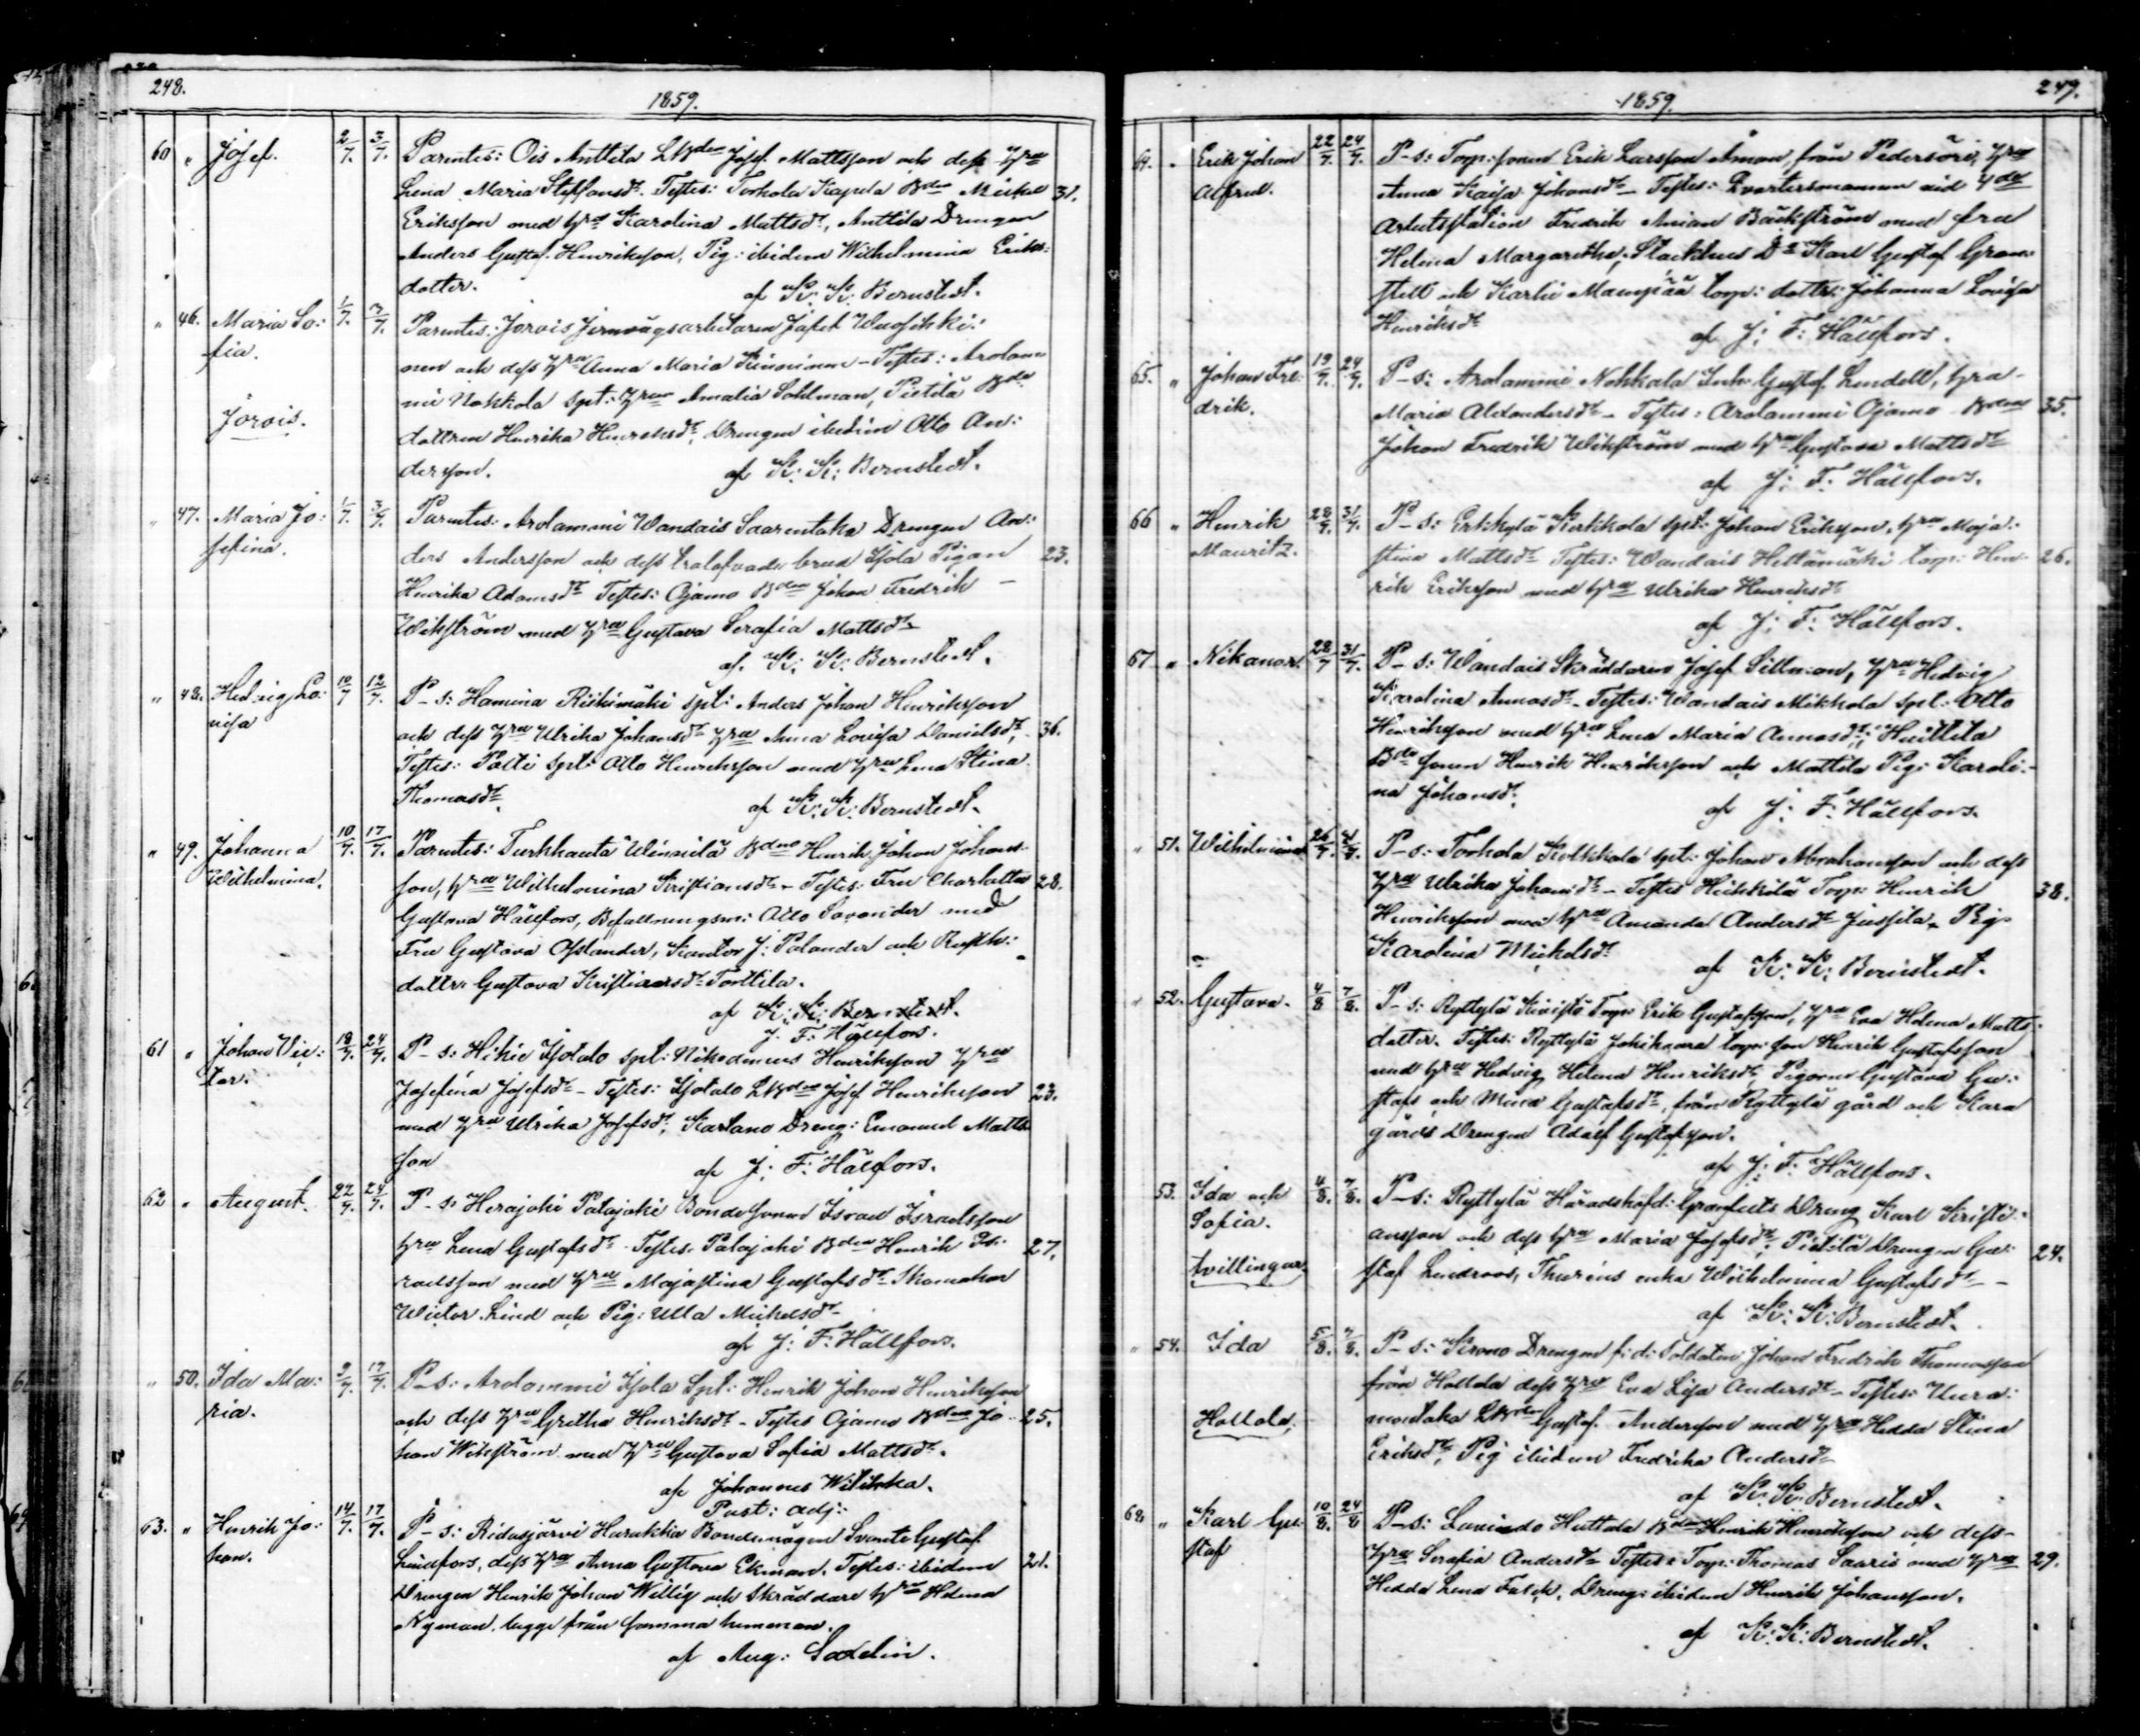 248.
1859.
60 " Josef. 2/7. 3/7. Parentes: Ois Anttila LBden Josef Mattsson och dess Hru
Lena Maria Staffansdr. Testes: Torhola Kapola Bden Mickel 31.
Eriksson med hru Karolina Mattsdr, Anttila Drengen
Anders Gustaf Henriksson, Pig: ibidem Wilhelmina Eriks-
dotter. af K: K: Bernstedt.
" 46. Maria So: 1/7. 3/7. Parentes: Jorois Jernvägsarbetaren Josef
fia. nen och dess Hru Anna Maria - Testes: Arolam
Jorois. mi Nokkola Spt: Hru Amalia Sohlman, Pietilä Bde
dottren Henrika Henriksdr, Drengen ibidem Otto An:
dersson. af K: K: Bernstedt.
" 47. Maria Jo: 1/7. 3/7. Parentes: Arolammi Wandais Saarentaka Drengen An:
sefina. ders Andersson och dess trolofvade brud Isola Pigan 23.
Henrika Adamsdr Testes: Ojamo Bden Johan Fredrik
Wikström med Hru Gustava Serafia Mattsdr
af K: K: Bernstedt.
" 48. Hedvig Lo: 10/7 12/7. P-s: Hamina Riihimäki Spt: Anders Johan Henriksson
visa och dess Hru Ulrika Johansdr Hru Anna Lovisa Danielsdr, 36.
Testes: Palti Spt: Otto Henriksson med Hru Lena Stina
Thomasdr. af K: K: Bernstedt.
" 49. Johanna 10/7. 17/7. Parentes: Turkhauta Bden Henrik Johan Johans-
Wilhelmina. son, hru Wilhelmina Kristiansdr - Testes: Fru Charlotta 28.
Gustava Hällfors, Befallningsm: Otto Savander med
Fru Gustava Asslander, Kantor J: Palander och Rusth:
dottr: Gustava Kristiansdr Torttila.
af K: K: Bernstedt.
J: F: Hällfors.
61 " Johan Vic: 18/7. 24/7. P-s: Hikie Isotalo Spt: Nikodemus Henriksson Hru
tor. Josefina Josefsdr - Testes: Isotalo LBden Josef Henriksson 23.
med Hru Ulrika Josefsdr, Kartano Dreng: Emanuel Matts
son af J: F: Hällfors.
62 " August. 22/7. 24/7. P-s: Herajoki Palojoki Bondesonen Israel Israelsson
hru Lena Gustafsdr - Testes: Palojoki Bden Henrik Is- 27.
raelsson med Hru Majastina Gustafsdr Skomakar
Wictor Lind och Pig: Ulla Mickelsdr
af J: F: Hällfors.
" 50. Ida Ma: 9/7. 17/7. P-s: Arolammi Isola Spt: Henrik Johan Henriksson
ria. och dess Hru Gretha Henriksdr - Testes Ojamo Bden Jo- 25.
han Wikström med Hru Gustava Sofia Mattsdr.
af Johannes
Past: adj:
63. " Henrik Jo: 14/7. 17/7. P-s: Ridasjärvi Harakka Bondemågen Svante Gustaf
han. Lindfors, dess Hru Anna Gustava Ekman. Testes: ibidem 21.
Drengen Henrik Johan Willig och Skräddare hru Helena
Nyman, begge från samma hemman.
af Aug: Saxelin.
249.
1859.
64. " Erik Johan 22/7. 24/7. P-s: Torp: sonen Erik Larsson Åman, från Pedersöre, hru
Alfred. Anna Kaisa Johansdr - Testes: Qvartersmannen vid 4de
Arbetsstation Fredrik Backström med fru
Helena Margaretha, Dr Karl Gustaf Gran-
och Karhi torp: dottr: Johanna Lovisa
Henriksdr af J: F: Hällfors.
65. " Johan Fre: 19/7. 24/7. P-s: Arolammi Nokkala Inh: Gustaf Lindell, hru
drik. Maria Alexandersdr - Testes: Arolammi Ojamo Bden 35.
Johan Fredrik Wikström med hru Gustava Mattsdr
af J: F: Hällfors.
66 " Henrik 28/7. 31/7. P-s: Erkkylä Kokkola Spt: Johan Eriksson, hru Maja-
Mauritz. stina Mattsdr Testes: Wandais Hettämäki torp: Hen- 26.
rik Eriksson med hru Ulrika Henriksdr
af J: F: Hällfors.
67 " Nikanor. 28/7 31/7. P-s: Wandais Skräddaren Josef Sillman, Hru Hedvig
Karolina Annasdr - Testes: Wandais Mikkola Spt: Otto
Henriksson med hru Lena Maria Annasdr; Huittila
Bde sonen Henrik Henriksson och Mattila Pig: Karoli-
na Johansdr. af J: F: Hällfors.
" 51. Wilhelmina 26/7. 31/7. P-s: Torhola Spt: Johan Abrahamsson och dess
Hru Ulrika Johansdr - Testes Heikkilä Torp: Henrik 38.
Henriksson med hru Amanda Andersdr Jussila, Pig
Karolina Mickelsdr
af K: K: Bernstedt.
" 52. Gustava. 4/8 7/8. P-s: Ryttylä Kivistö Torp: Erik Gustafsson, Hru Eva Helena Matts-
dotter. Testes: Ryttylä torp: son Henrik Gustafsson
med hru Hedvig Helena Henriksdr, Pigorne Gustava Gu-
stafs och Mina Gustafsdr, från Ryttylä gård och Kara
gårds Drengen Adolf Gustafsson.
af J: F: Hällfors.
53. Ida och 4/8. 7/8. P-s: Ryttylä Häradshöfd: Granfelts Dreng Karl Kristi-
Sofia. ansson och dess hru Maria Josefsdr; Pietilä Drengen Gu: 24.
tvillingar, staf Lindroos, Thurens enka Wilhelmina Gustafsdr -
af K: K: Bernstedt.
" 54. Ida 5/8. 7/8. P-s: Drengen f: d: Soldaten Johan Fredrik Thomasson
från Hollola dess Hru Eva Lisa Andersdr - Testes: Uura:
Hollola, montaka LBden Gustaf Andersson med Hru Hedda Stina
Eriksdr, Pig ibidem Fredrika Andersdr
af K: K: Bernstedt.
68 " Karl Gu- 10/8. 24/8 P-s: Launido Huttula Bden Henrik Henriksson och dess
staf Hru Serafia Andersdr Testes: Torp: Thomas Saaris med Hru 29.
Hedda Lena Falck, Dreng: ibidem Henrik Johansson.
af K: K: Bernstedt.